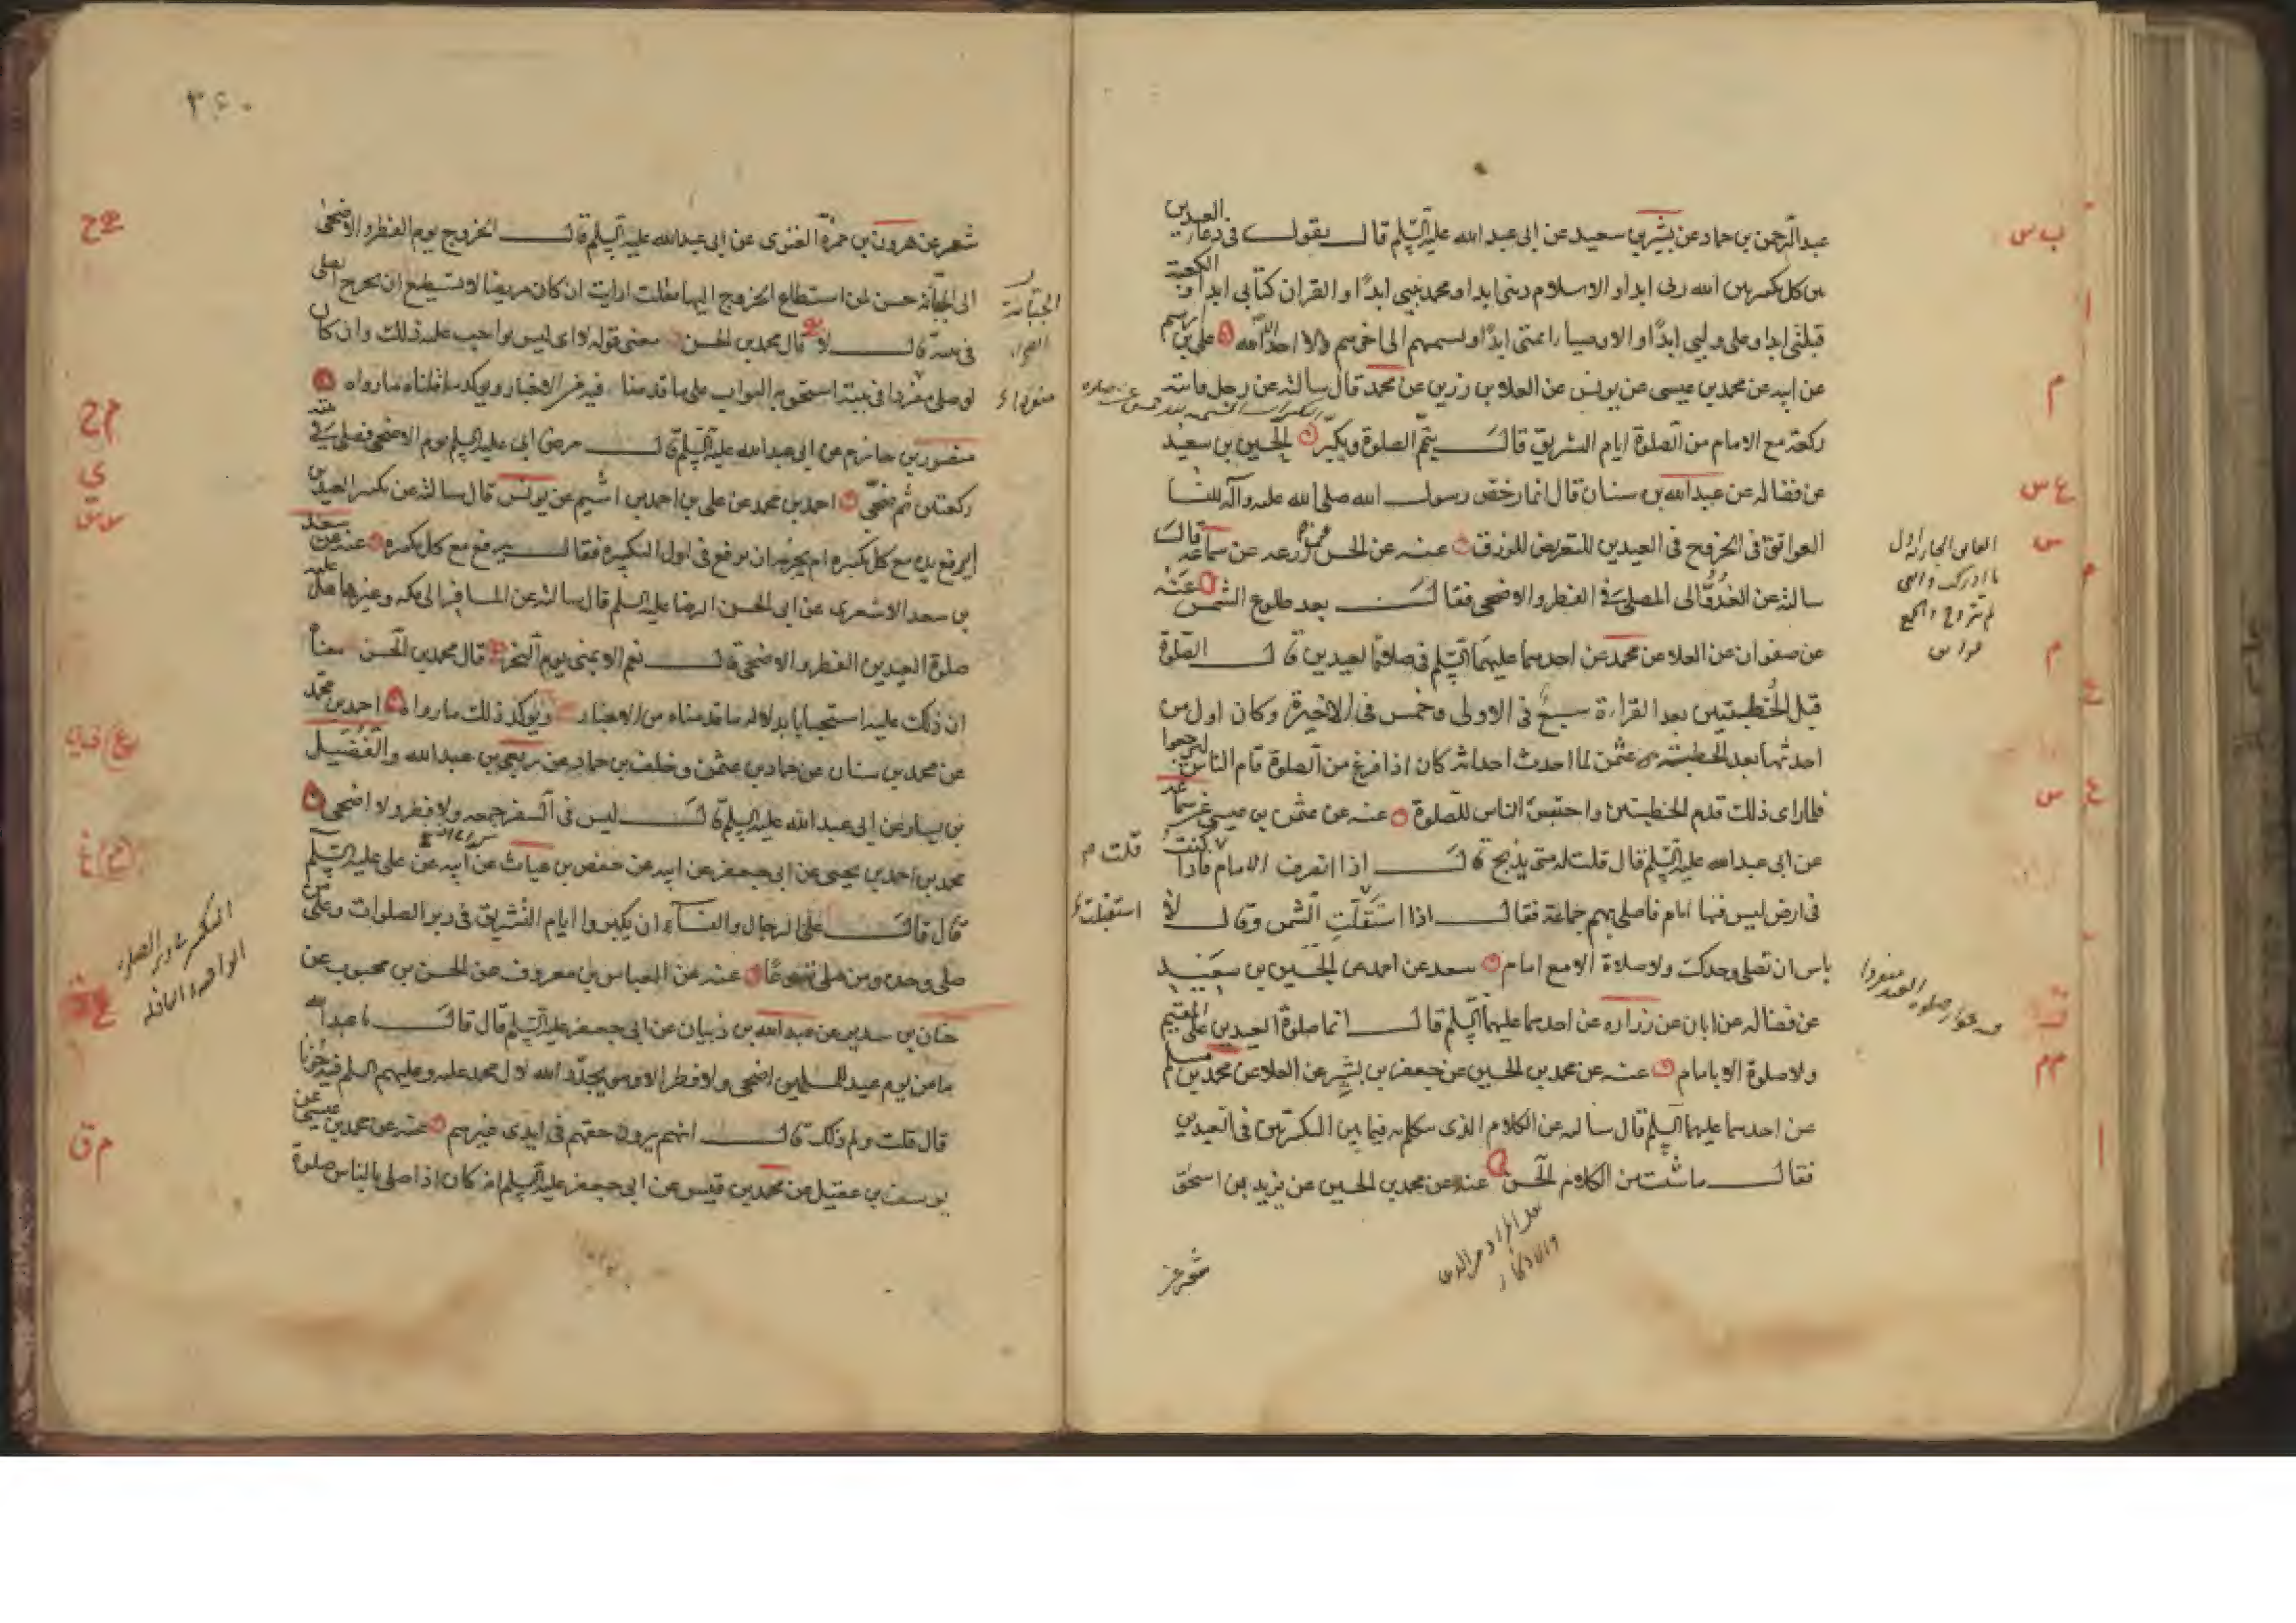 عبد الرحمن بن حماد عن بشير بن سعيد عن ابى عبد الله عليه السلم قال يقول فى دعاء العيدين
بين كل تكبيرتين الله ربى ابدا والاسلام دينى ابدا ومحمد نبيى ابدًا والقران كتابى ابدا والكعبة
قبلتى ابدا وعلى وليى ابدًا والاوصيا ائمتى ابدًا وتسميهم الى اخرهم ولا احد الا الله على بن ابرهيم
عن ابيه عن محمد بن عيسى عن يونس عن العلا بن رزين عن محمد قال سالته عن رجل فاتته
ركعة مع الامام من الصلوة ايام التشريق قال يتم الصلوة ويكبر الحسين بن سعيد
عن فضاله عن عبد الله بن سنان قال انما رخص رسول الله صلى الله عليه وآله للنسا
العواتق فى الخروج فى العيدين للتعرض للرزق عنه عن الحسن عن زرعه عن سماعه قال
سالته عن الغدو الى المصلى فى الفطر والاضحى فقال بعد طلوع الشمس عنه
عن صفوان عن العلا عن محمد عن احدهما عليهما السلم فى صلاة العيدين قال الصلوة
قبل الخطبتين بعد القراءة سبع فى الاولى وخمس فى الاخيرة وكان اول من
احدثها بعد الخطبة عثمن لما احدث احداثه كان اذا فرغ من الصلوة قام الناس ليرجعوا
فلما راى ذلك قدم الخطبتين واحتبس الناس للصلوة عنه عن عثمن بن عيسى عن سماعه
عن ابى عبد الله عليه السلم قال قلت له متى يذبح قال اذا انصرف الامام فاذا كنت
فى ارض ليس فيها امام فاصلى بهم جماعة فقال اذا استقلت الشمس وقال لا
باس ان تصلى وحدك ولا صلاة الا مع امام سعد عن احمد عن الحسين بن سعيد
عن فضاله عن ابان عن زراره عن احدهما عليهما السلم قال انما صلوة العيدين على المقيم
ولا صلوة الا بامام عنه عن محمد بن الحسين عن جعفر بن بشير عن العلا عن محمد بن مسلم
عن احدهما عليهما السلم قال سالته عن الكلام الذى يتكلم به فيما بين التكبيرتين فى العيدين
فقال ما شئت من الكلام الحسن عنه عن محمد بن الحسين عن يزيد بن اسحق
شعر عن
قلت م
استقبلت
٣٤٠
شعر عن هرون بن حمزة الغنوى عن ابى عبد الله عليه السلم قال الخروج يوم الفطر والاضحى
الى الجبانة حسن لمن استطاع الخروج اليها فقلت ارايت ان كان مريضا لا يستطيع ان يخرج ايصلى
فى بيته قال لا قال محمد بن الحسن معنى قوله لا اى ليس بواجب عليه ذلك وان كان
لو صلى مفردا فى بيته استحق به الثواب على ما قدمنا فيه من الاخبار ويوكد ما قلناه ما رواه
منصور بن حازم عن ابى عبد الله عليه السلم قال مرض ابى عليه السلم يوم الاضحى فصلى فى بيته
ركعتين ثم ضحى احمد بن محمد عن على بن احمد بن اشيم عن يونس قال سالته عن تكبير العيدين
ايرفع يده مع كل تكبيره ام يجزيه ان يرفع فى اول التكبيره فقال يرفع مع كل تكبيره عنه عن سعد
بن سعد الاشعرى عن ابى الحسن الرضا عليه السلم قال سالته عن المسافر الى مكه وغيرها هل عليه
صلوة العيدين الفطر والاضحى قال نعم الا بمنى يوم النحر قال محمد بن الحسن معناه
ان ذلك عليه استحبابا بدلالة ما قدمناه من الاخبار ويوكد ذلك ما رواه احمد بن محمد
عن محمد بن سنان عن حماد بن عثمن وخلف بن حماد عن ربعى بن عبد الله والفضيل
بن يسار عن ابى عبد الله عليه السلم قال ليس فى السفر جمعه ولا فطر ولا اضحى
محمد بن احمد بن يحيى عن ابى جعفر عن ابيه عن حفص بن غياث عن ابيه عن على عليه السلم
قال قال على الرجال والنسآء ان يكبروا ايام التشريق فى دبر الصلوات وعلى من
صلى وحده ومن صلى تطوعًا عنه عن العباس بن معروف عن الحسن بن محبوب عن
حنان بن سدير عن عبد الله بن ذبيان عن ابى جعفر عليه السلم قال قال يا عبد الله
ما من يوم عيد للمسلمين اضحى ولا فطر الا وهو يجدد الله لال محمد عليه وعليهم السلم فيه حزنا
قال قلت ولم ذلك قال انهم يرون حقهم فى ايدى غيرهم عنه عن محمد بن عيسى عن
يوسف بن عقيل عن محمد بن قيس عن ابى جعفر عليه السلم انه كان اذا صلى بالناس صلوة
الجبانة
الصحراء
منفردا